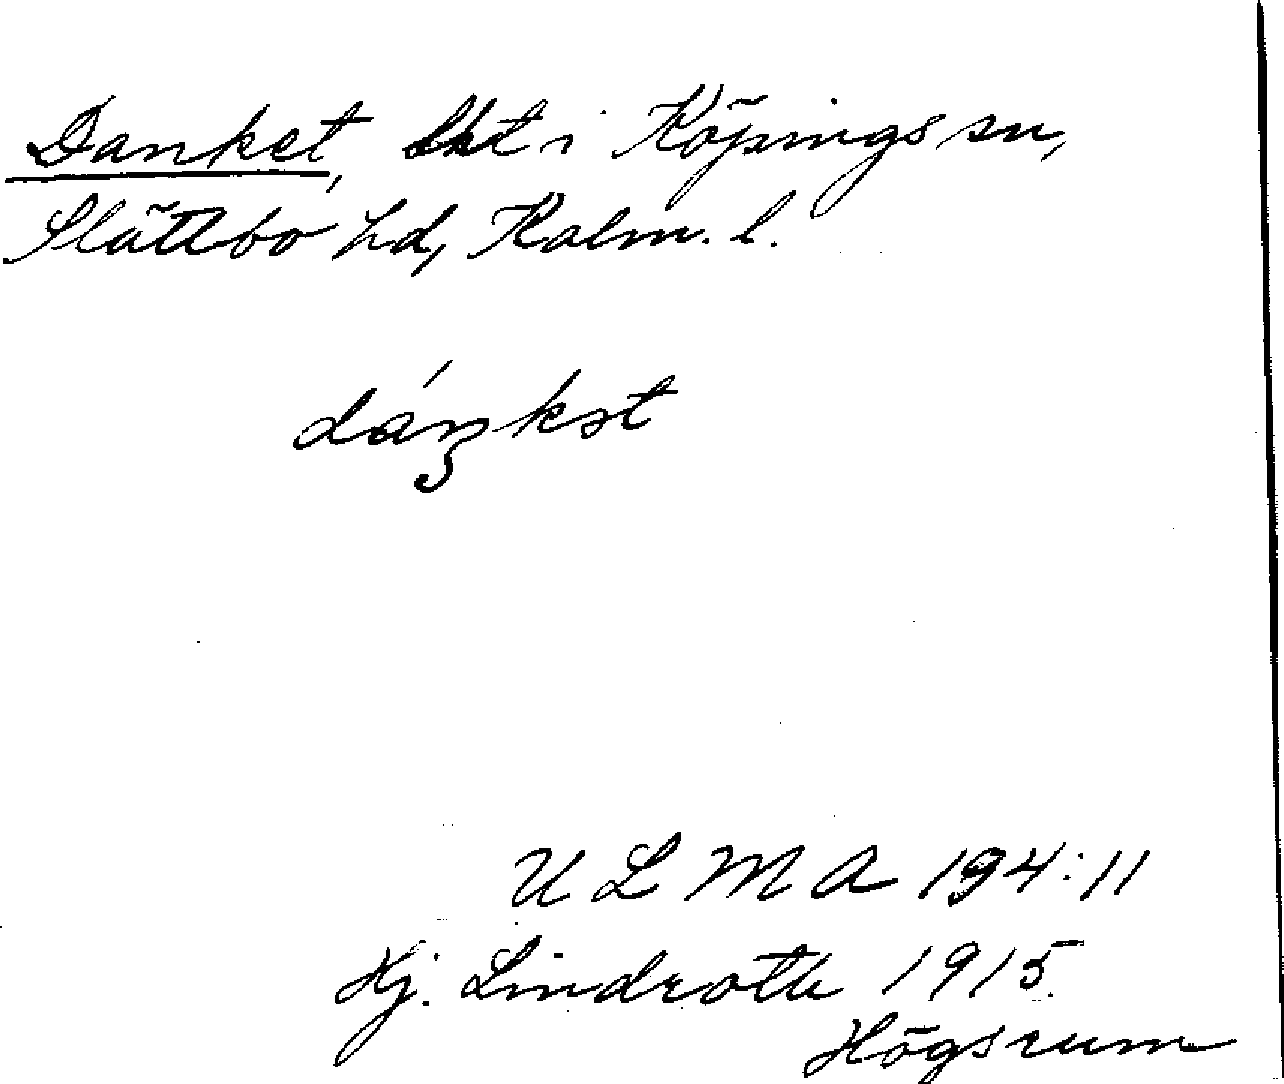 Danket, Skt i Köpings sn,
Slättbo hd, Kalm. l.
dáŋkət
U L M A 194:11
Hj. Lindroth 1915.
Högsrum